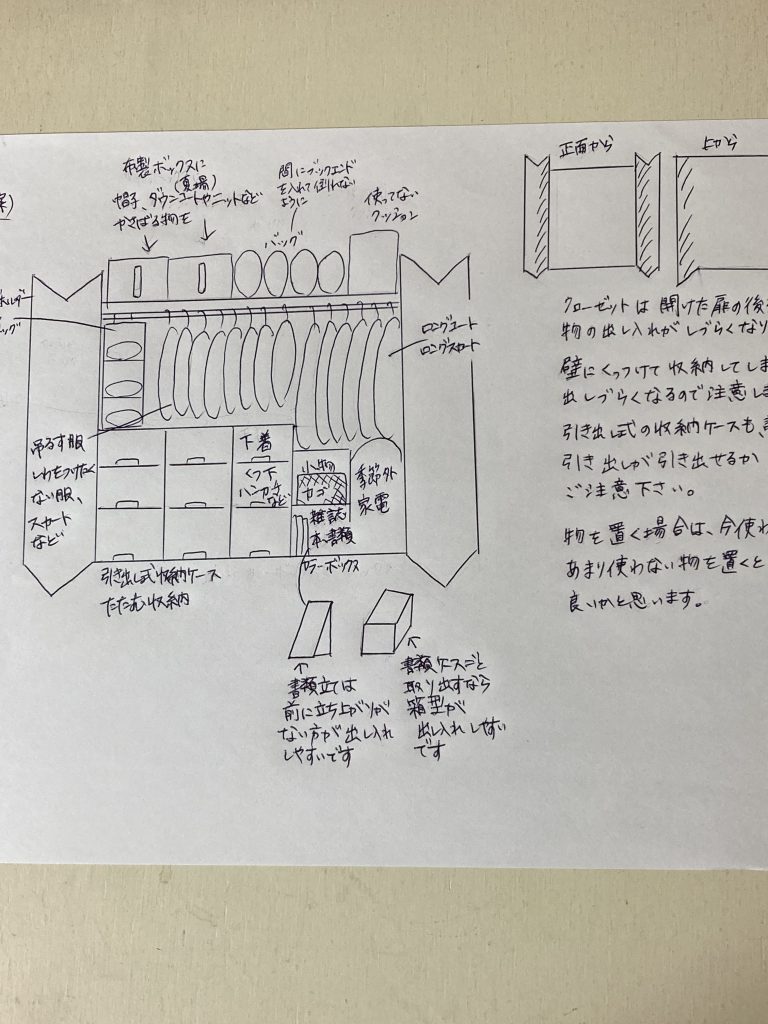 案)
布製ボックスに
(夏場)
帽子、ダウンコートやニットなど
かさばる物を
間にブックエンド
を入れて倒れない
ように
バッグ
使ってない
クッション
ホルダ
ッグ
ロングコート
ロングスカート
吊るす服
しわをつけたく
ない服、
スカート
など
下着
くつ下
ハンカチ
など
小物
カゴ
雑誌
本、書類
季節外
家電
カラーボックス
引き出し式収納ケース
たたむ収納
書類立ては
前に立ち上がりが
ない方が出し入れ
しやすいです
書類ケースごと
取り出すなら
箱型が
出し入れしやすい
です
正面から
上から
クローゼットは開けた扉の後
物の出し入れがしづらくなり
壁にくっつけて収納してしま
出しづらくなるので注意しま
引き出し式の収納ケースも、
引き出しが引き出せるか
ご注意下さい。
物を置く場合は、今使わ
あまり使わない物を置くと
良いかと思います。